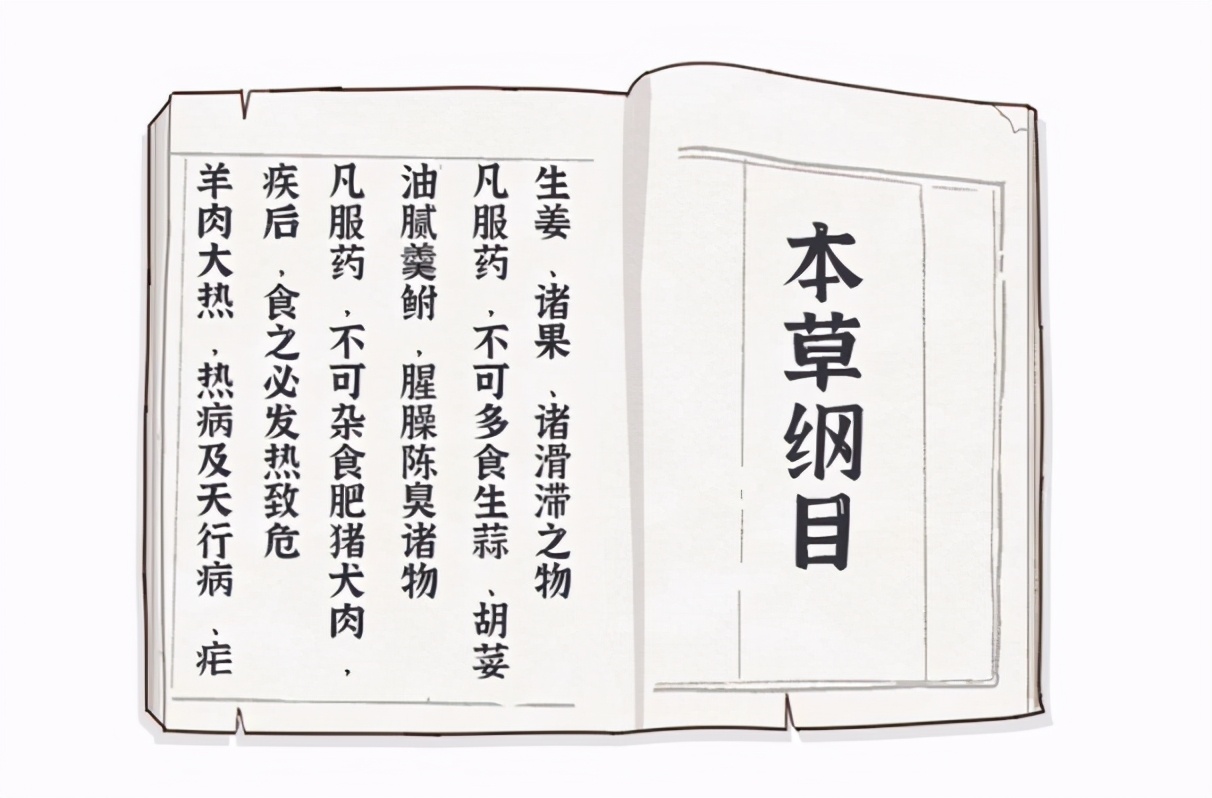 本草纲目
生姜、诸果、诸滑滞之物
凡服药，不可多食生蒜、胡荽
油腻羹鲋，腥臊陈臭诸物
凡服药，不可杂食肥猪犬肉，
疾后，食之必发热致危
羊肉大热，热病及天行病、疟